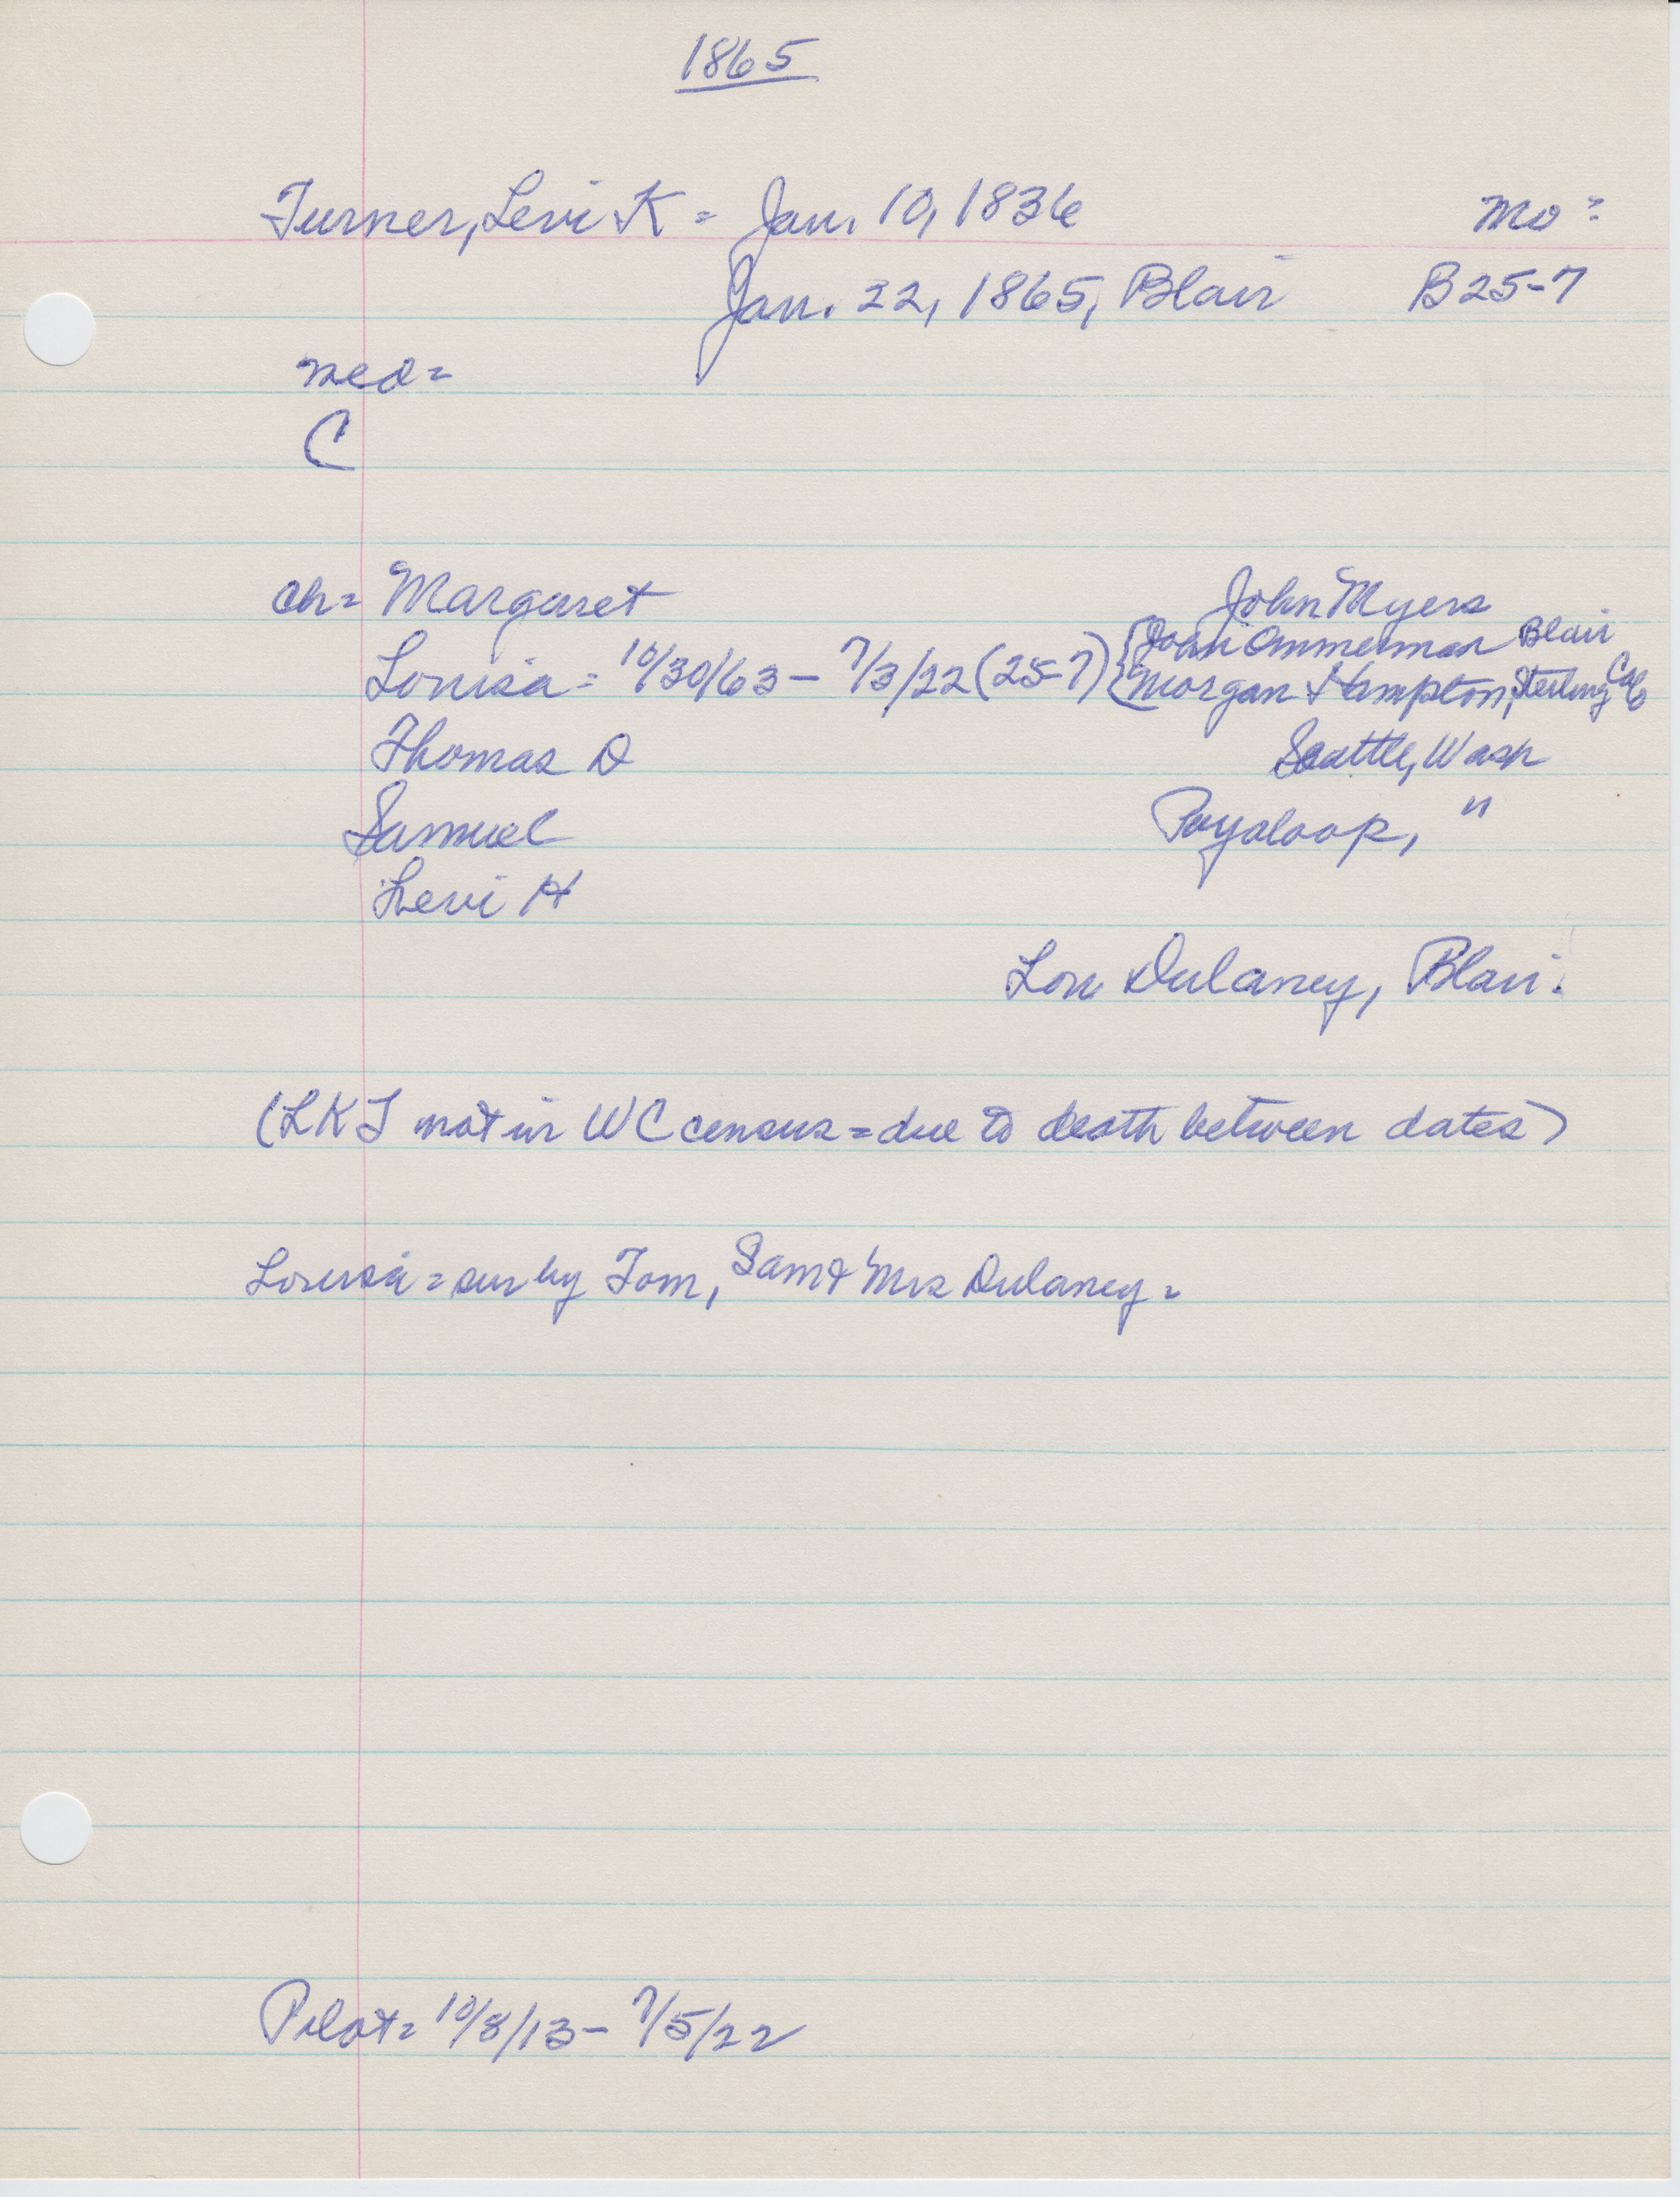 1865
Turner, Levi K = Jan. 10, 1836 Mo =
Jan. 22, 1865, Blair B25-7
med =
C
ch = Margaret John Myers
Louisa = 10/30/63 - 7/3/22 (25-7) { John Ammerman Blair
Morgan Hampton, Sterling Col
Thomas D Seattle, Wash
Samuel Puyaloop, "
Levi H
Lou Dulaney, Blair.
(LKT not in WC census = due to death between dates)
Louisa = sur by Tom, Sam & Mrs Dulaney =
Pilot = 10/8/13 - 7/5/22